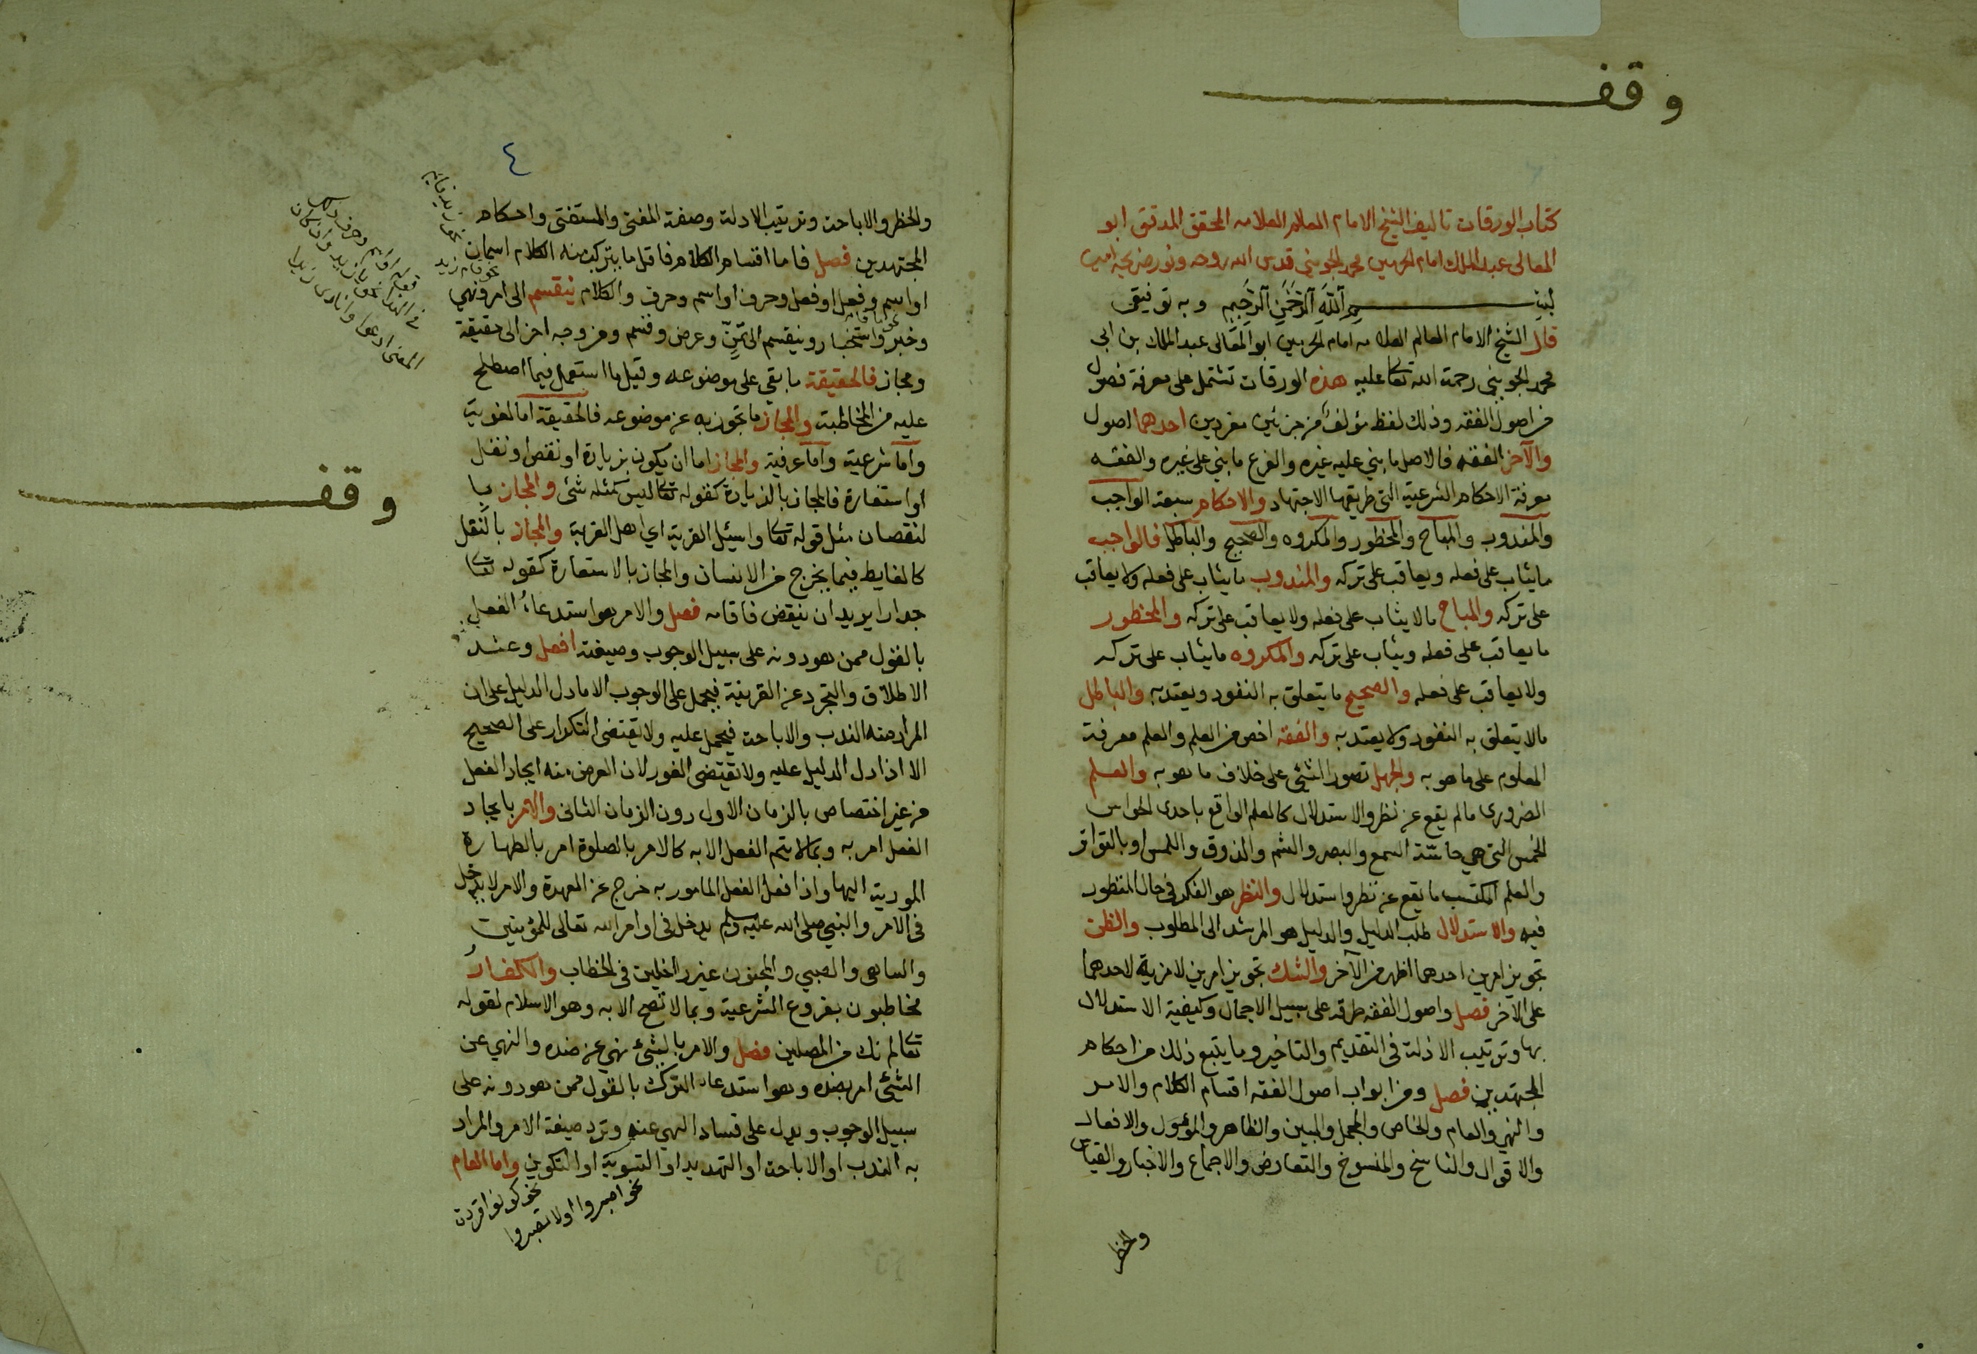 وقف
كتاب الورقات تاليف الشيخ الامام العالم العلامه المحقق المدقق ابو
المعالى عبد الملك امام الحرمين محمد الجوينى قدس الله روحه ونور ضريحه امين
بسم الله الرحمن الرحيم وبه توفيقى
قال الشيخ الامام العالم العلامه امام الحرمين ابو المعالى عبد الملك بن ابى
محمد الجوينى رحمة الله تعا عليه هذه الورقات تشتمل على معرفة فصول
من اصول الفقه وذلك لفظ مؤلف من جزئين مفردين احدهما اصول
والآخر الفقه فالاصل ما بني عليه غيره والفرع ما بني على غيره والفقه
معرفة الاحكام الشرعية التى طريقها الاجتهاد والاحكام سبعة الواجب
والمندوب والمباح والمحظور والمكروه والصحيح والباطل فالواجب
ما يثاب على فعله ويعاقب على تركه والمندوب ما يثاب على فعله ولا يعاقب
على تركه والمباح ما لا يثاب على فعله ولا يعاقب على تركه والمحظور
ما يعاقب على فعله ويثاب على تركه والمكروه ما يثاب على تركه
ولا يعاقب على فعله والصحيح ما يتعلق به النفوذ ويعتد به والباطل
مالا يتعلق به النفوذ ولا يعتد به والفقه اخص من العلم والعلم معرفة
المعلوم على ما هو به والجهل تصور الشئ على خلاف ما هو به والعلم
الضرورى مالم يقع عن نظر والاستدلال كالعلم الواقع باحدى الحواس
الخمس التى هي حاسة السمع والبصر والشم والذوق واللمس او بالتواتر
والعلم المكتسب ما يقع عن نظر واستدلال والنظر هو الفكر في حال المنظور
فيه والاستدلال طلب الدليل والدليل هو المرشد الى المطلوب والظن
تجويز امرين احدهما اظهر من الآخر والشك تجويز امرين لا مزية لاحدهما
على الآخر فصل واصول الفقه طرقه على سبيل الاجمال وكيفية الاستدلال
بها وترتيب الادلة فى التقديم والتاخير وما يتبع ذلك من احكام
المجتهدين فصل ومن ابواب اصول الفقه اقسام الكلام والامر
والنهي والعام والخاص والمجمل والمبين والظاهر والمؤول والافعال
والاقوال والناسخ والمنسوخ والتعارض والاجماع والاخبار والقياس
والحظر
٤
والحظر والاباحة وترتيب الادلة وصفة المفتى والمستفتى واحكام
المجتهدين فصل فاما اقسام الكلام فاقل ما يتركب منه الكلام اسمان
او اسم وفعل او فعل وحرف او اسم وحرف والكلام ينقسم الى امر ونهي
وخبر واستخبار وينقسم الى تمنّ وعرض وقسم ومن وجه اخر الى حقيقة
ومجاز فالحقيقة ما بقي على موضوعه وقيل ما استعمل فيما اصطلح
عليه من المخاطبة والمجاز ما تجوز به عن موضوعه فالحقيقة اما لغوية
واما شرعية واما عرفية والمجاز اما ان يكون بزيادة او نقص او نقل
او استعارة فالمجاز بالزيادة كقوله تعا ليس كمثله شئ والمجاز با
لنقصان مثل قوله تعا واسئل القرية اي اهل القرية والمجاز بالنقل
كالغايط فيما يخرج من الانسان والمجاز بالاستعارة كقوله تعا
جدارا يريد ان ينقض فاقامه فصل والامر هو استدعاء الفعل
بالقول ممن هو دونه على سبيل الوجوب وصيغته افعل وعند
الاطلاق والتجرد عن القرينة فيحمل على الوجوب الا ما دل الدليل على ان
المراد منه الندب والاباحة فيحمل عليه ولا تقتضى التكرار على الصحيح
الا اذا دل الدليل عليه ولا تقتضى الفور لان الغرض منه ايجاد الفعل
من غير اختصاص بالزمان الاول دون الزمان الثانى والامر بايجاد
الفعل امر به وبما لا يتم الفعل الا به كالامر بالصلوة امر بالطهارة
الموديه اليها واذا فعل الفعل المامور به خرج عن العهدة والامر لا يدخل
فى الامر والنبي صلى الله عليه وسلم يدخل فى اوامر الله تعالى للمؤمنين
والساهى والصبي والمجنون غير داخلين فى الخطاب والكفار
مخاطبون بفروع الشرعية وبما لا تصح الا به وهو الاسلام لقوله
تعا لم نك من المصلين فصل والامر بالشئ نهي عن ضده والنهي عن
الشئ امر بضده وهو استدعاء الترك بالقول ممن هو دونه على
سبيل الوجوب ويدل على فساد النهي عنه وترد صيغة الامر والمراد
به الندب او الاباحة او التهديد او التسوية او التكوين واما العام
نحو اصبروا اولا تصبروا
نحو كونوا قردة
نحو زيد قائم
نحو قام زيد
وقف